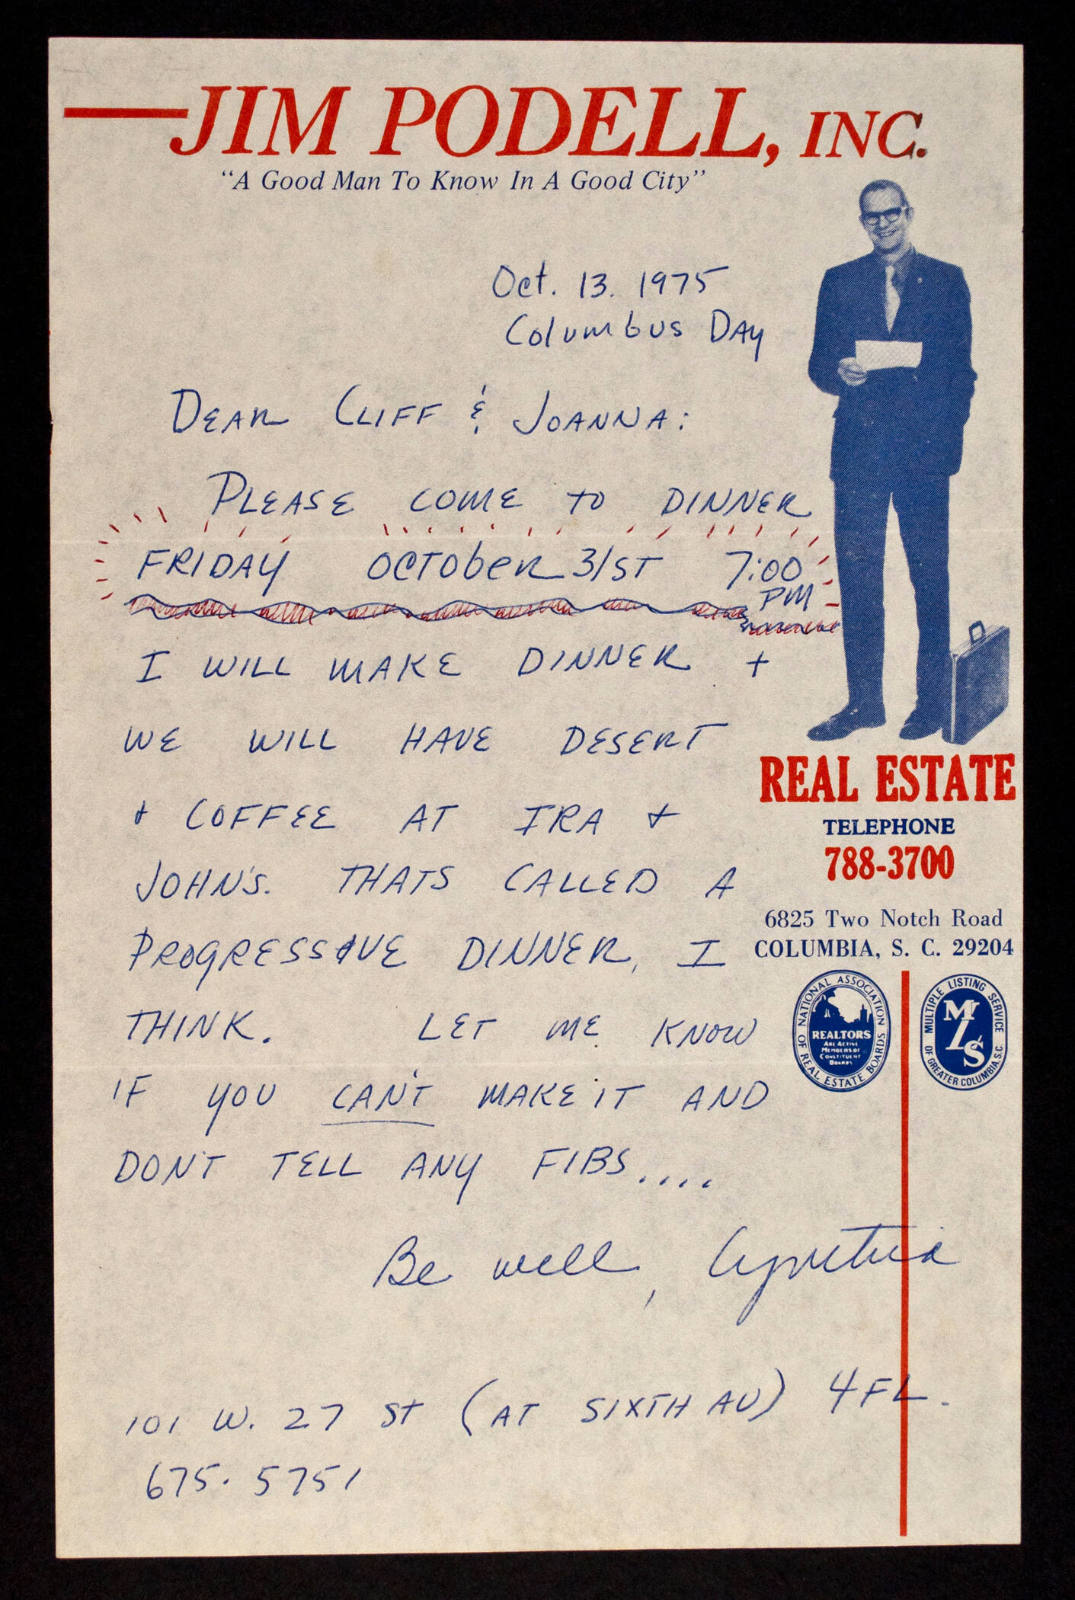 JIM PODELL, INC.
"A Good Man To Know In A Good City"
Oct. 13. 1975
Columbus DAY
DEAR CLIFF & JOANNA:
PLEASE COME TO DINNER
FRIDAY OCTOBER 31ST 7:00
PM
I WILL MAKE DINNER +
WE WILL HAVE DESERT
+ COFFEE AT IRA +
JOHN'S. THATS CALLED A
PROGRESSIVE DINNER, I
THINK. LET ME KNOW
IF YOU CAN'T MAKE IT AND
DON'T TELL ANY FIBS....
Be well, Cynthia
101 W. 27 ST (AT SIXTH AV) 4FL.
675-5751
REAL ESTATE
TELEPHONE
788-3700
6825 Two Notch Road
COLUMBIA, S. C. 29204
NATIONAL ASSOCIATION OF REAL ESTATE BOARDS
REALTORS
ARE ACTIVE
MEMBERS OF
CONSTITUENT
BOARDS
MULTIPLE LISTING SERVICE
MLS
OF GREATER COLUMBIA, S.C.